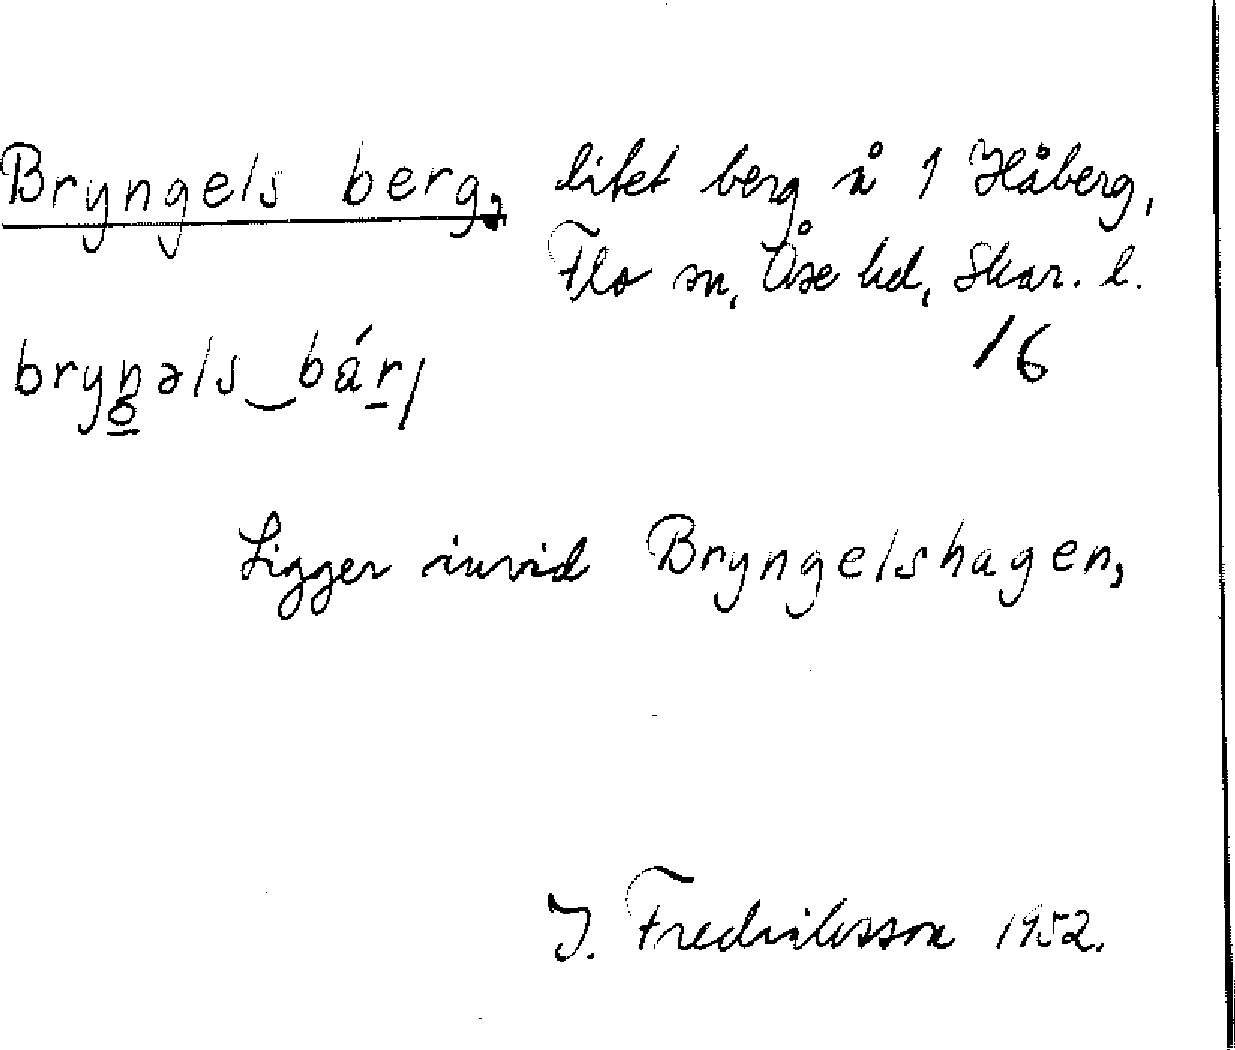 Bryngels berg, litet berg å 1 Håberg,
Flo sn, Åse hd, Skar. l.
16
Ligger invid Bryngelshagen,
I. Fredriksson 1952.